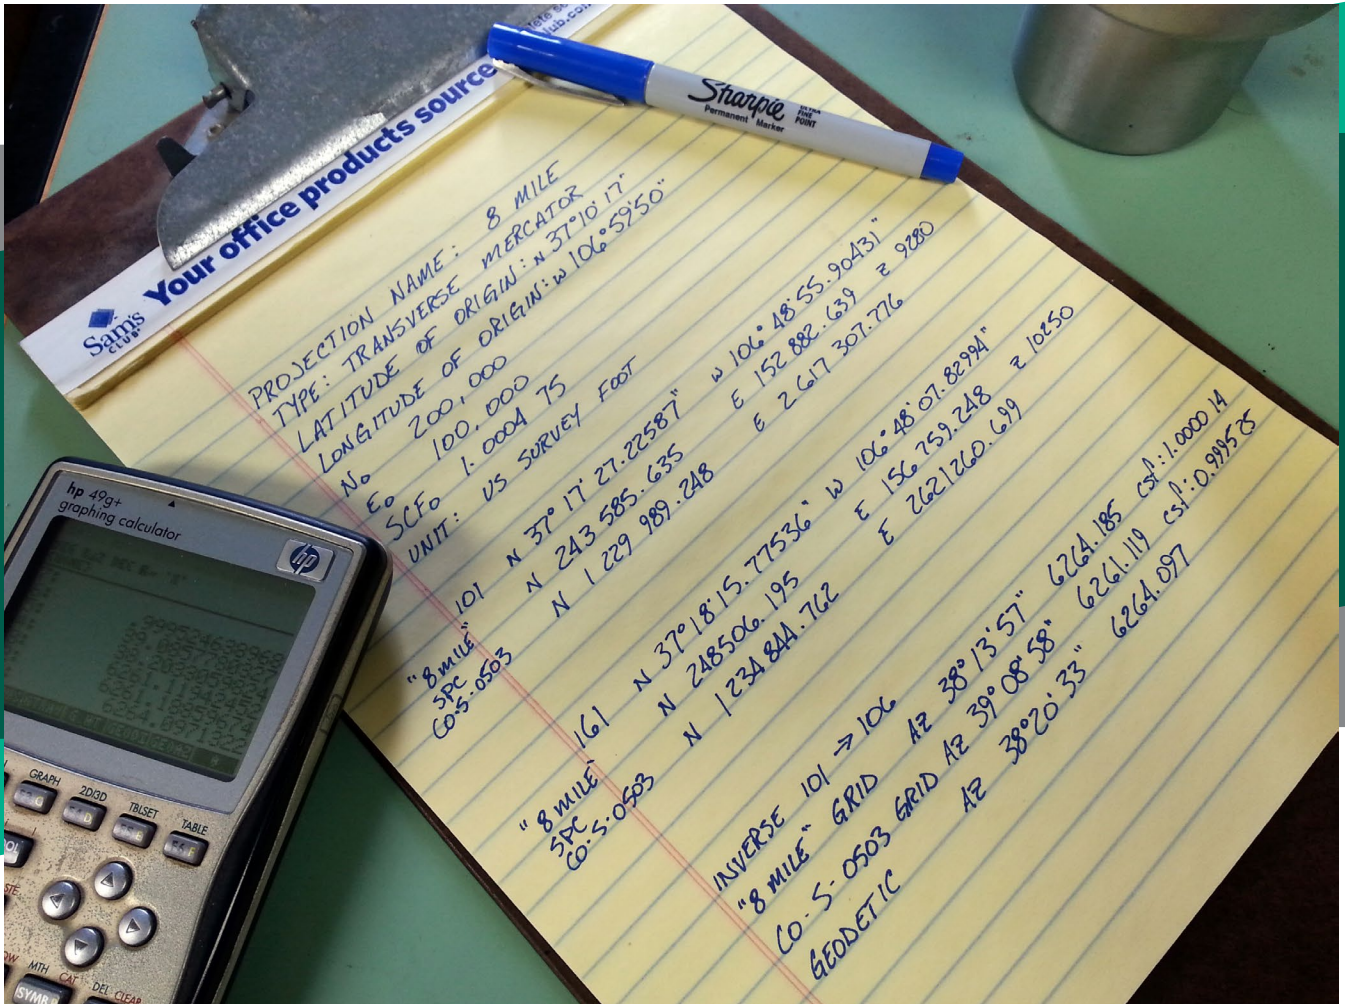 Your office products source
Sam's
CLUB
Sharpie
Permanent Marker
ULTRA
FINE
POINT
PROJECTION NAME: 8 MILE
TYPE: TRANSVERSE MERCATOR
LATITUDE OF ORIGIN: N 37°10'17"
LONGITUDE OF ORIGIN: W 106°59'50"
No 200,000
Eo 100,000
SCFo 1.0004 75
UNIT: US SURVEY FOOT
101 N 37°17'27.22587" W 106°48'55.90431"
"8 MILE" N 243 585.635 E 152 882.639 Z 9280
SPC N 1 229 989.248 E 2 617 307.776
CO-S-0503
161 N 37°18'15.77536" W 106°48'07.82994"
"8 MILE" N 248506.195 E 156 759.248 Z 10250
SPC N 1 234 844.762 E 2621260.699
CO-S-0503
INVERSE 101 → 106
"8 MILE" GRID AZ 38°13'57" 6264.185 csf: 1.0000 14
CO-S-0503 GRID AZ 39°08'58" 6261.119 csf: 0.999525
GEODETIC AZ 38°20'33" 6264.097
hp 49g+
graphing calculator
hp
GRAPH
2D/3D
TBLSET
TABLE
MTH
CAT
DEL
CLEAR
SYMB